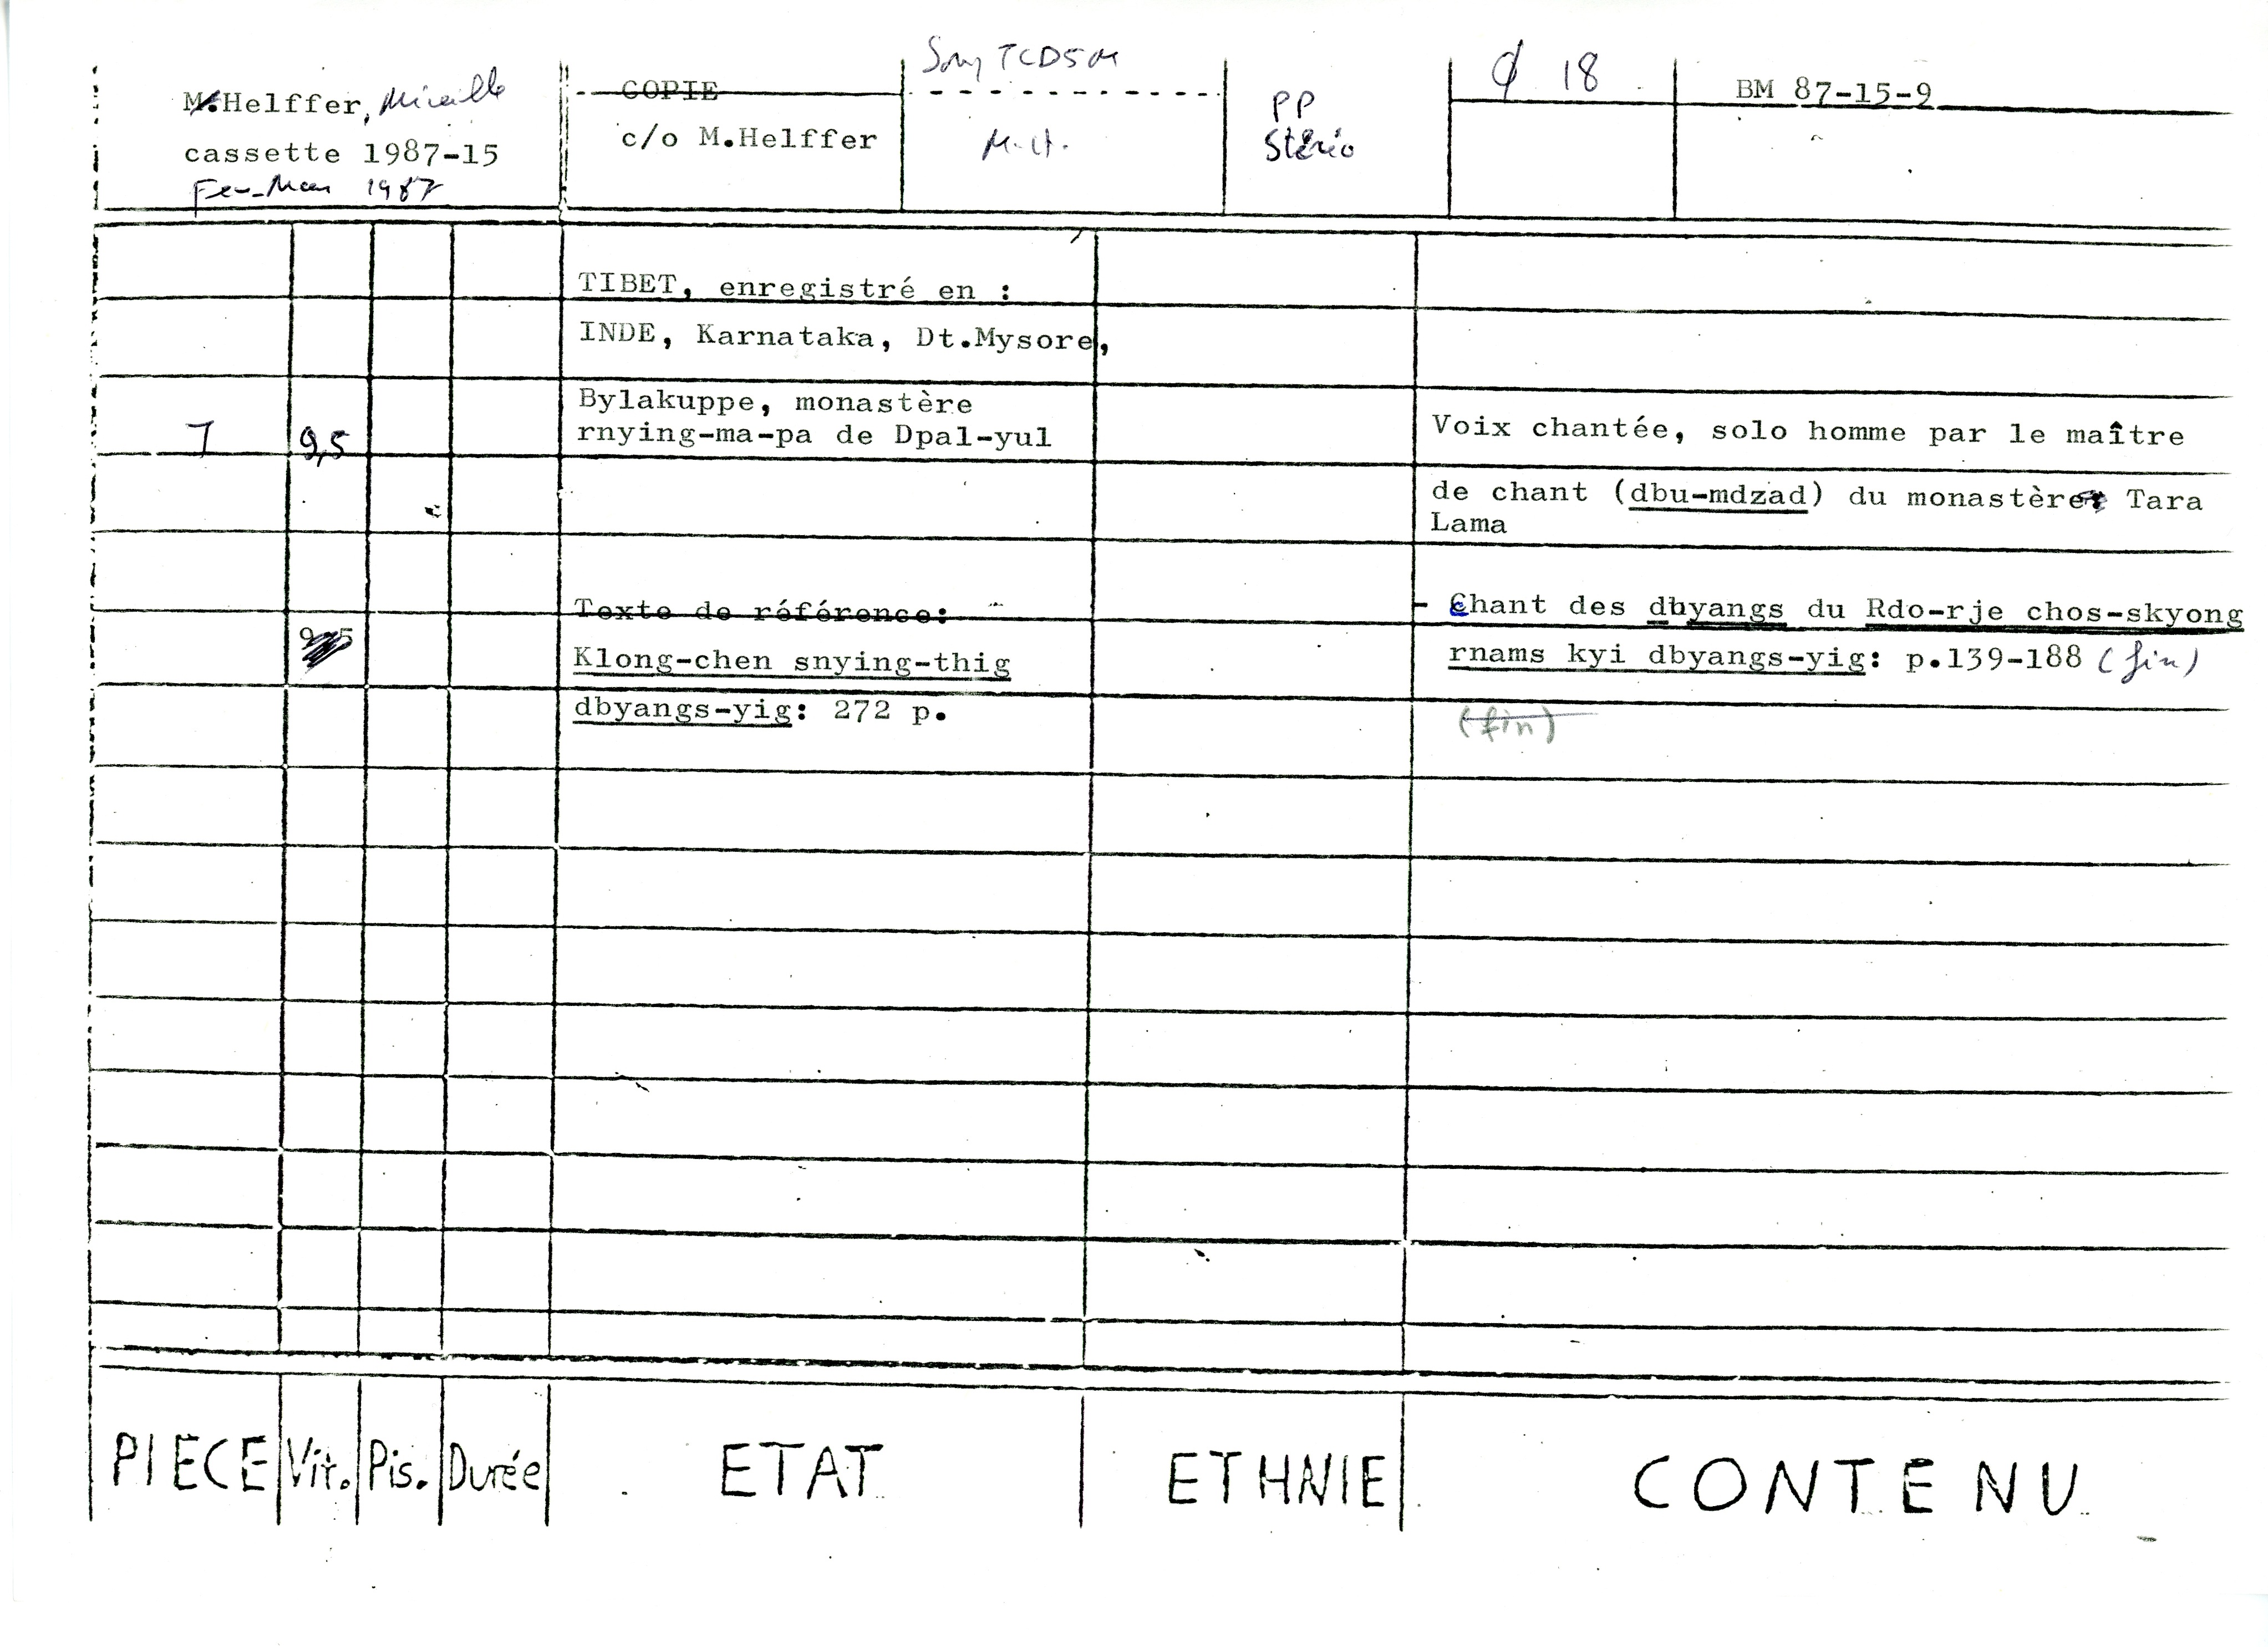 M.Helffer, Mireille
cassette 1987-15
Fev-Mars 1987
COPIE
c/o M.Helffer
Sony TCD5M
M.H.
PP
Stéréo
18
BM 87-15-9
TIBET, enregistré en :
INDE, Karnataka, Dt.Mysore,
Bylakuppe, monastère
rnying-ma-pa de Dpal-yul
9,5
Voix chantée, solo homme par le maître
de chant (dbu-mdzad) du monastère Tara
Lama
Texte de référence:
Klong-chen snying-thig
dbyangs-yig: 272 p.
- Chant des dbyangs du Rdo-rje chos-skyong
rnams kyi dbyangs-yig: p.139-188 (fin)
(fin)
PIECE Vit. Pis. Durée ETAT ETHNIE CONTENU